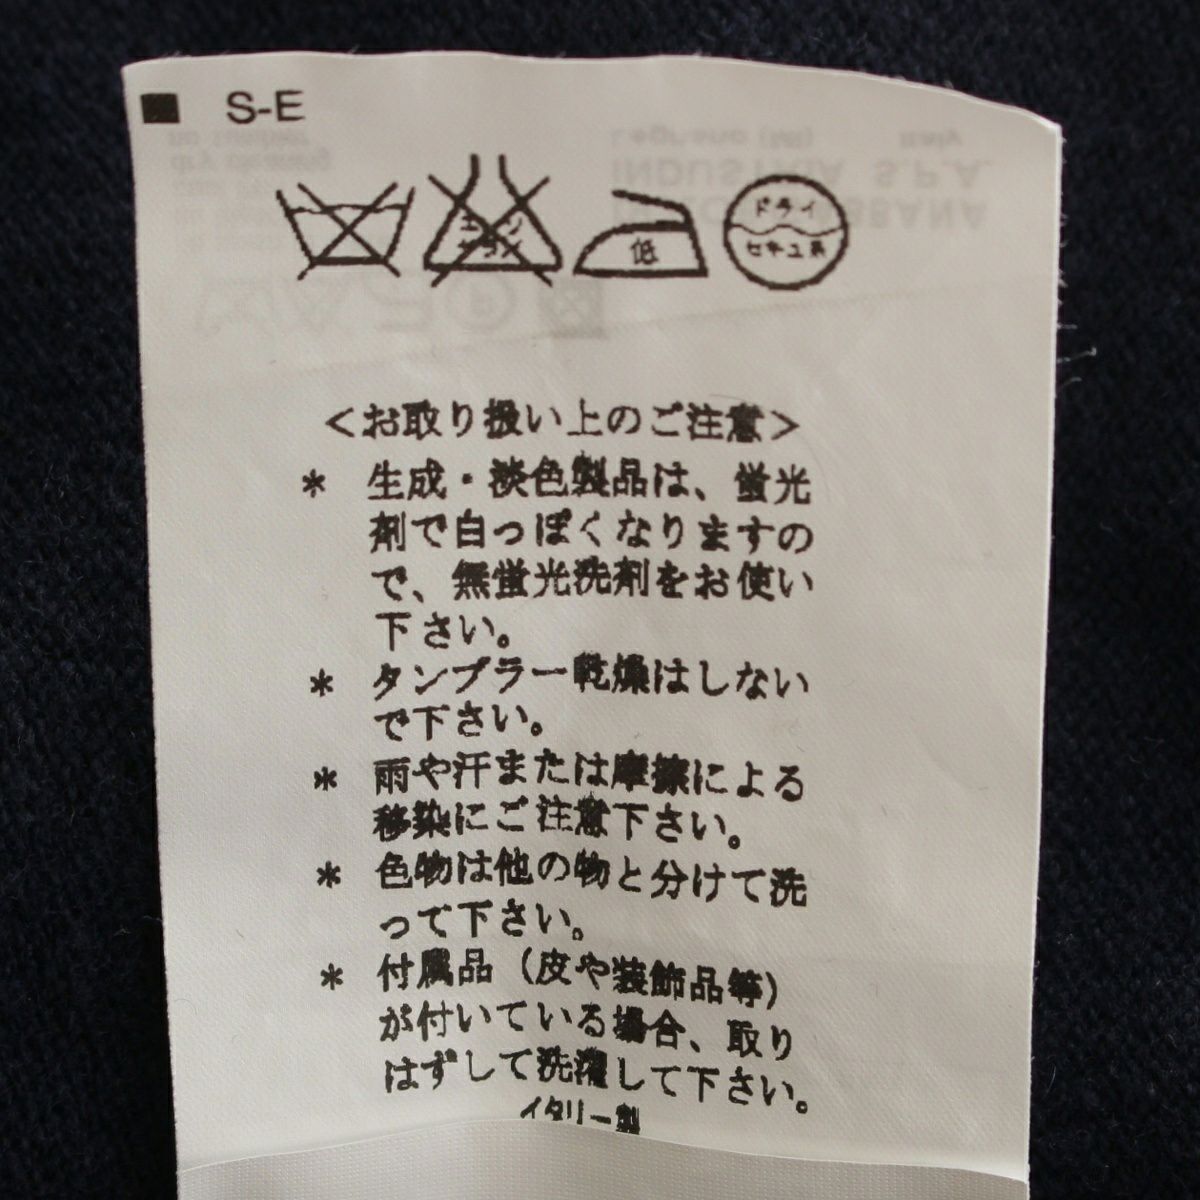 ■ S-E
低
ドライ
セキユ系
<お取り扱い上のご注意>
* 生成・淡色製品は、蛍光
剤で白っぽくなりますの
で、無蛍光洗剤をお使い
下さい。
* タンブラー乾燥はしない
で下さい。
* 雨や汗または摩擦による
移染にご注意下さい。
* 色物は他の物と分けて洗
って下さい。
* 付属品（皮や装飾品等）
が付いている場合、取り
はずして洗濯して下さい。
イタリー製